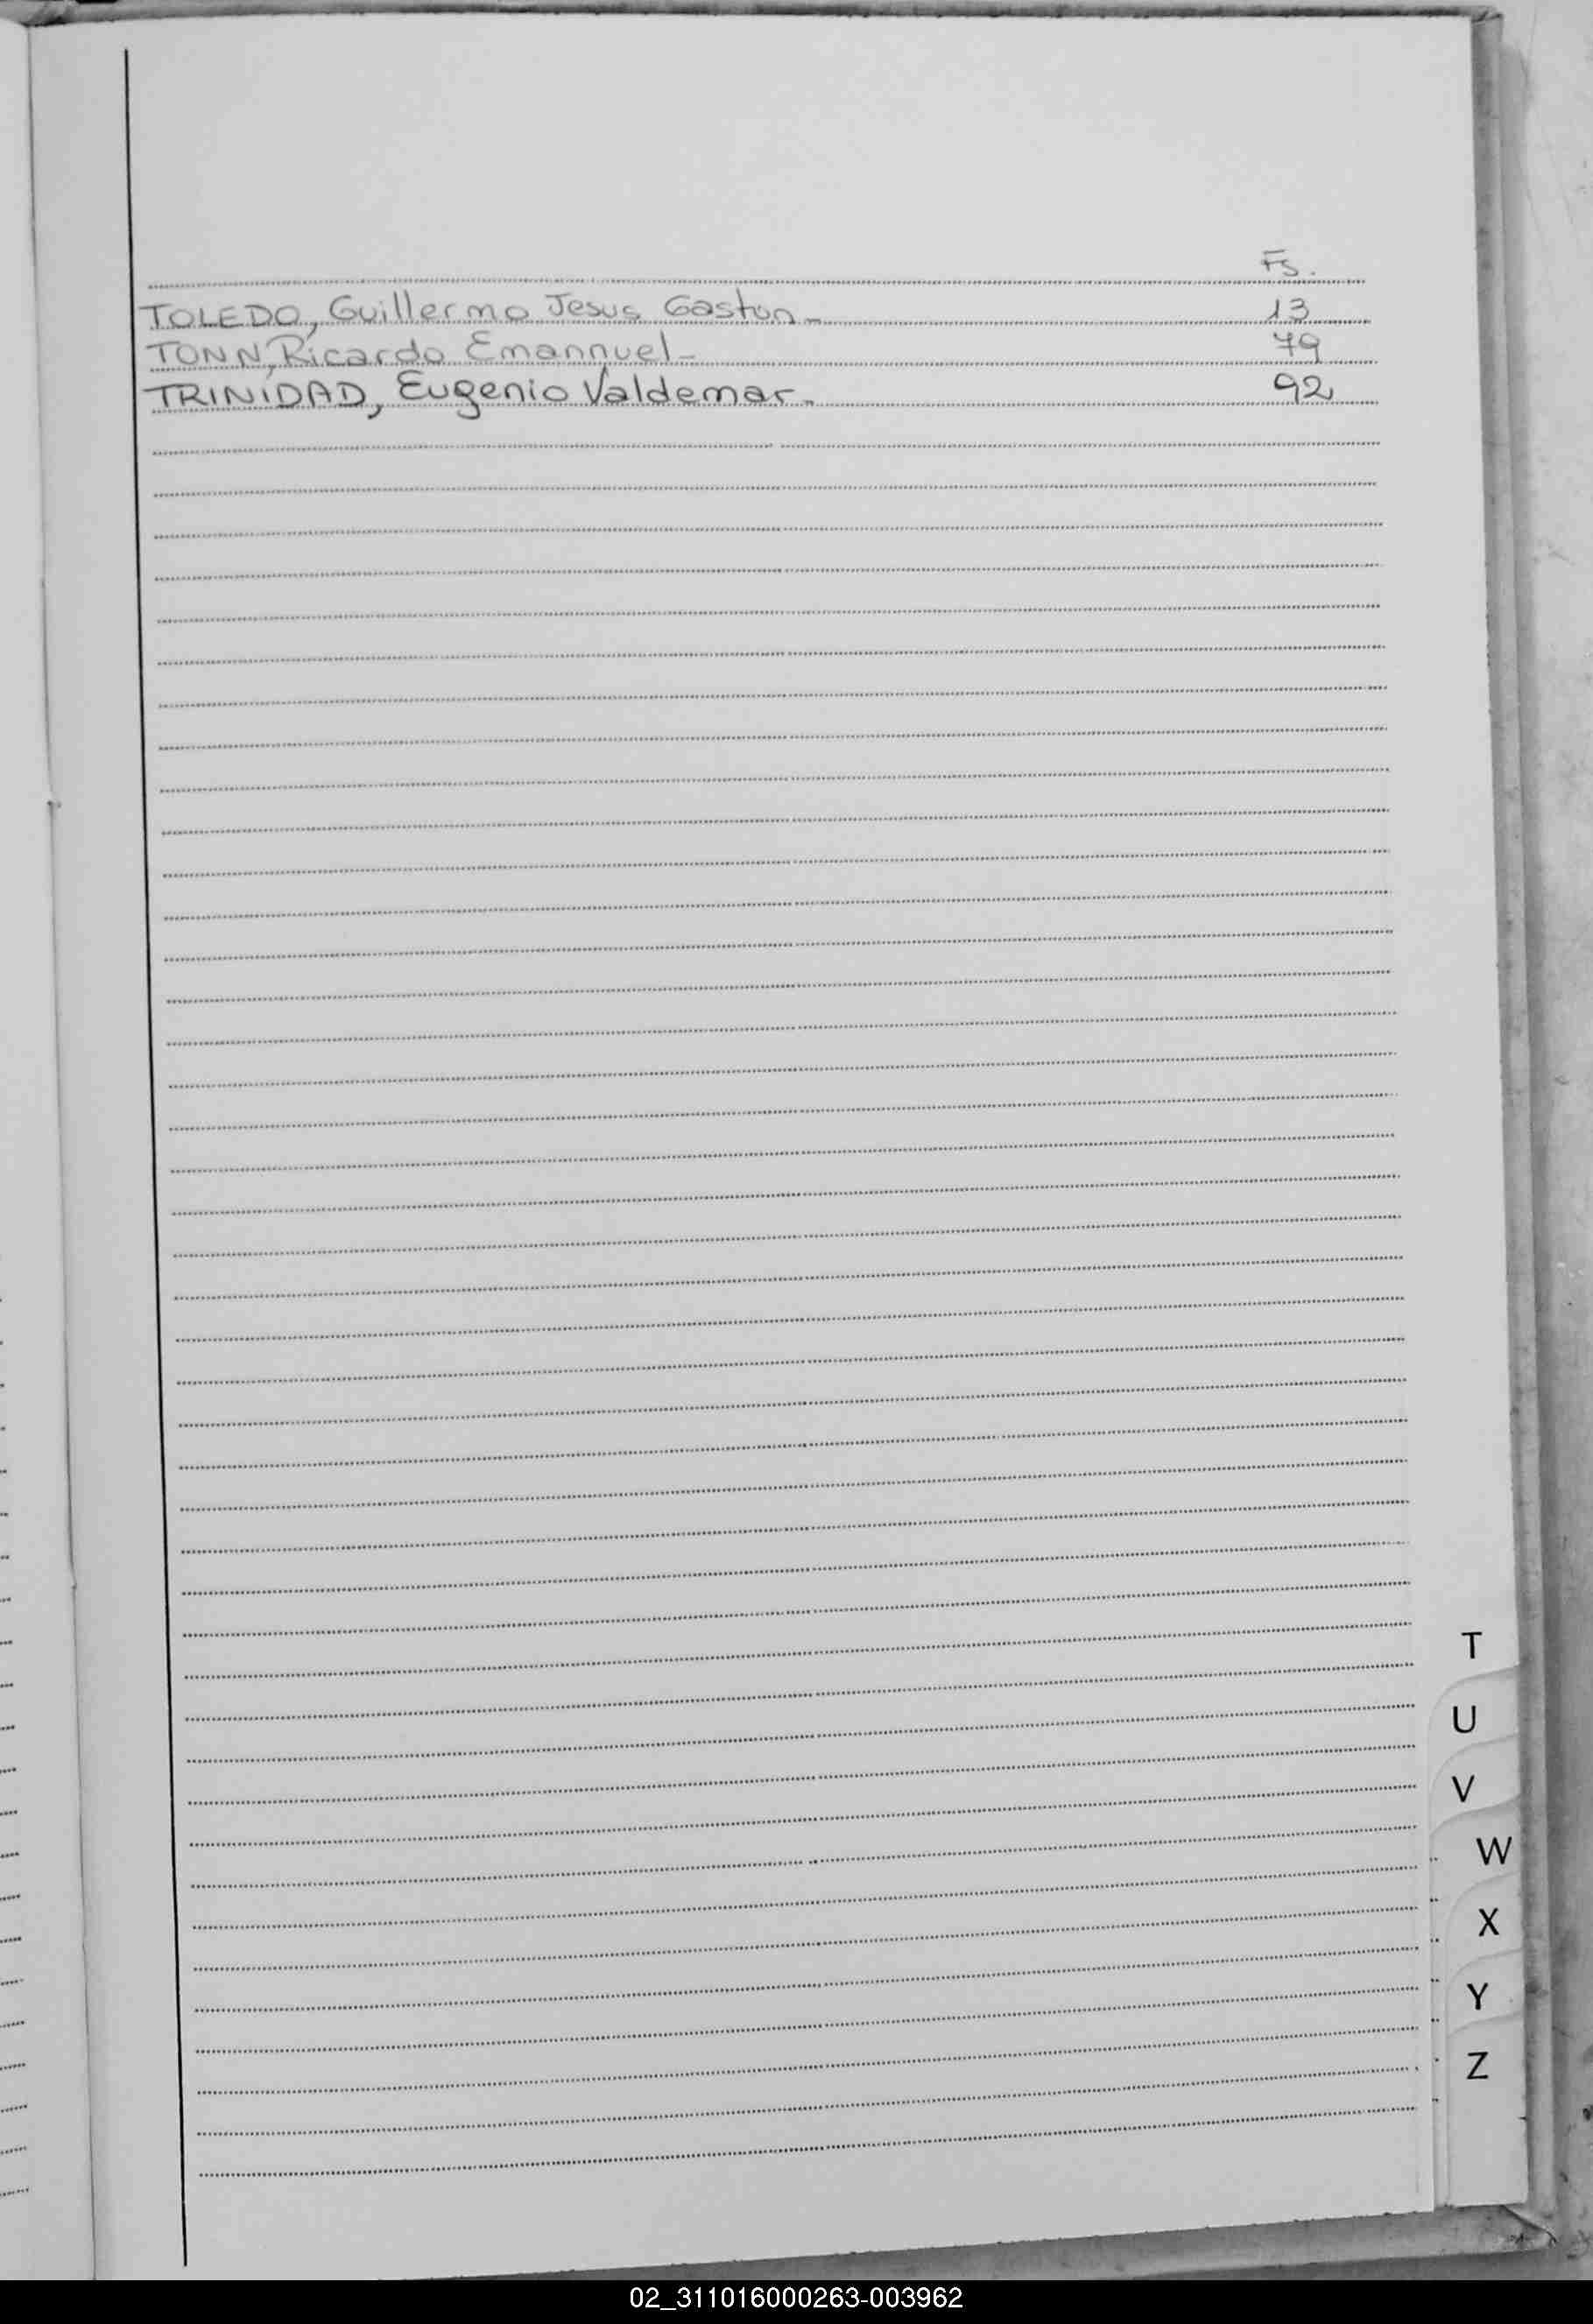 Fs.
TOLEDO, Guillermo Jesus Gaston - 13
TONN, Ricardo Emannuel - 79
TRINIDAD, Eugenio Valdemar - 92
T
U
V
W
X
Y
Z
02_311016000263-003962